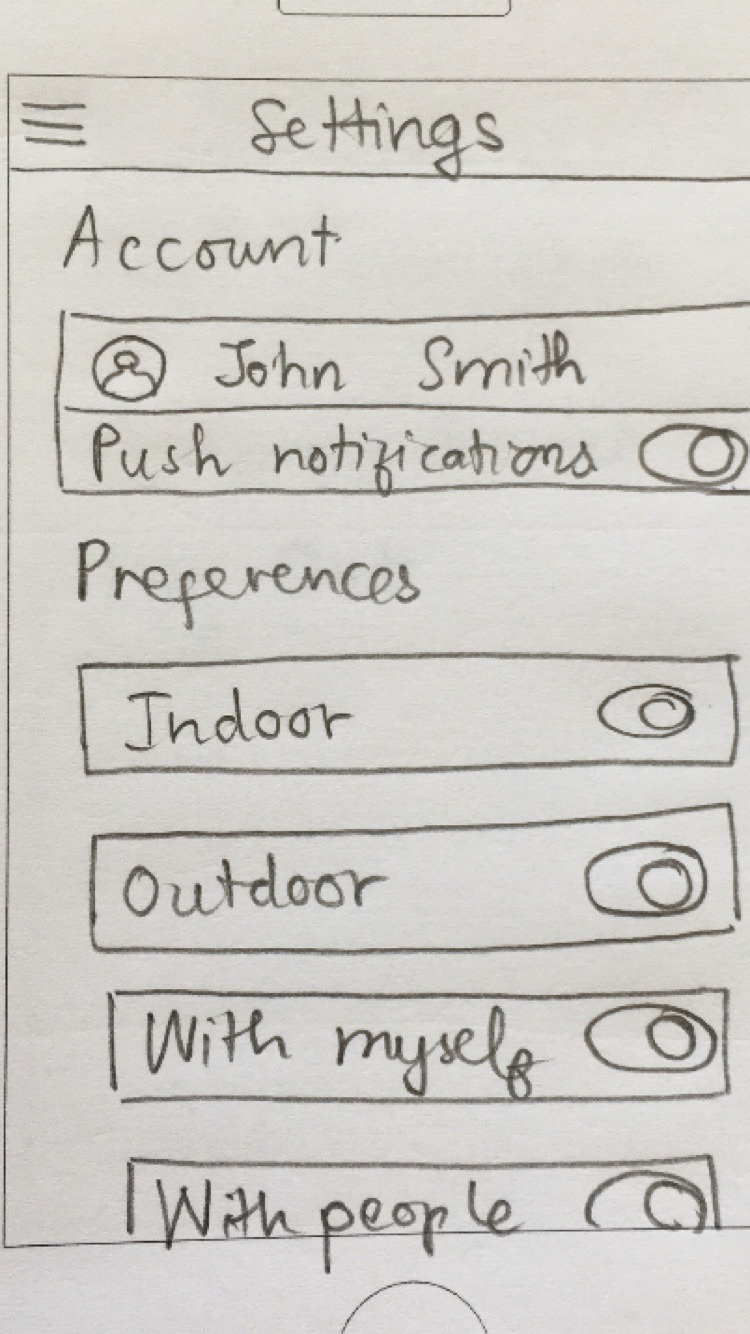 Settings
Account
John Smith
Push notifications
Preferences
Indoor
Outdoor
With myself
With people